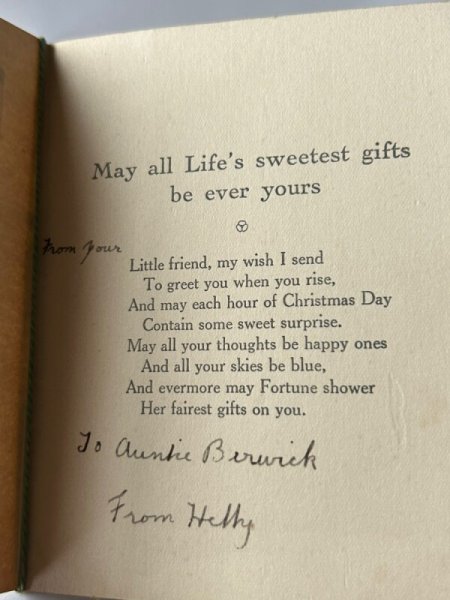 May all Life's sweetest gifts
be ever yours
From your
Little friend, my wish I send
To greet you when you rise,
And may each hour of Christmas Day
Contain some sweet surprise.
May all your thoughts be happy ones
And all your skies be blue,
And evermore may Fortune shower
Her fairest gifts on you.
To Auntie Berwick
From Hetty